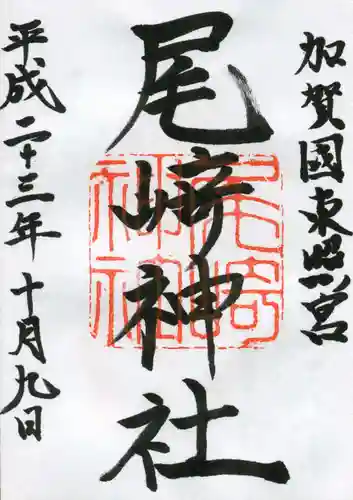 加賀國東照宮
尾崎神社
尾崎神社
平成二十三年十月九日